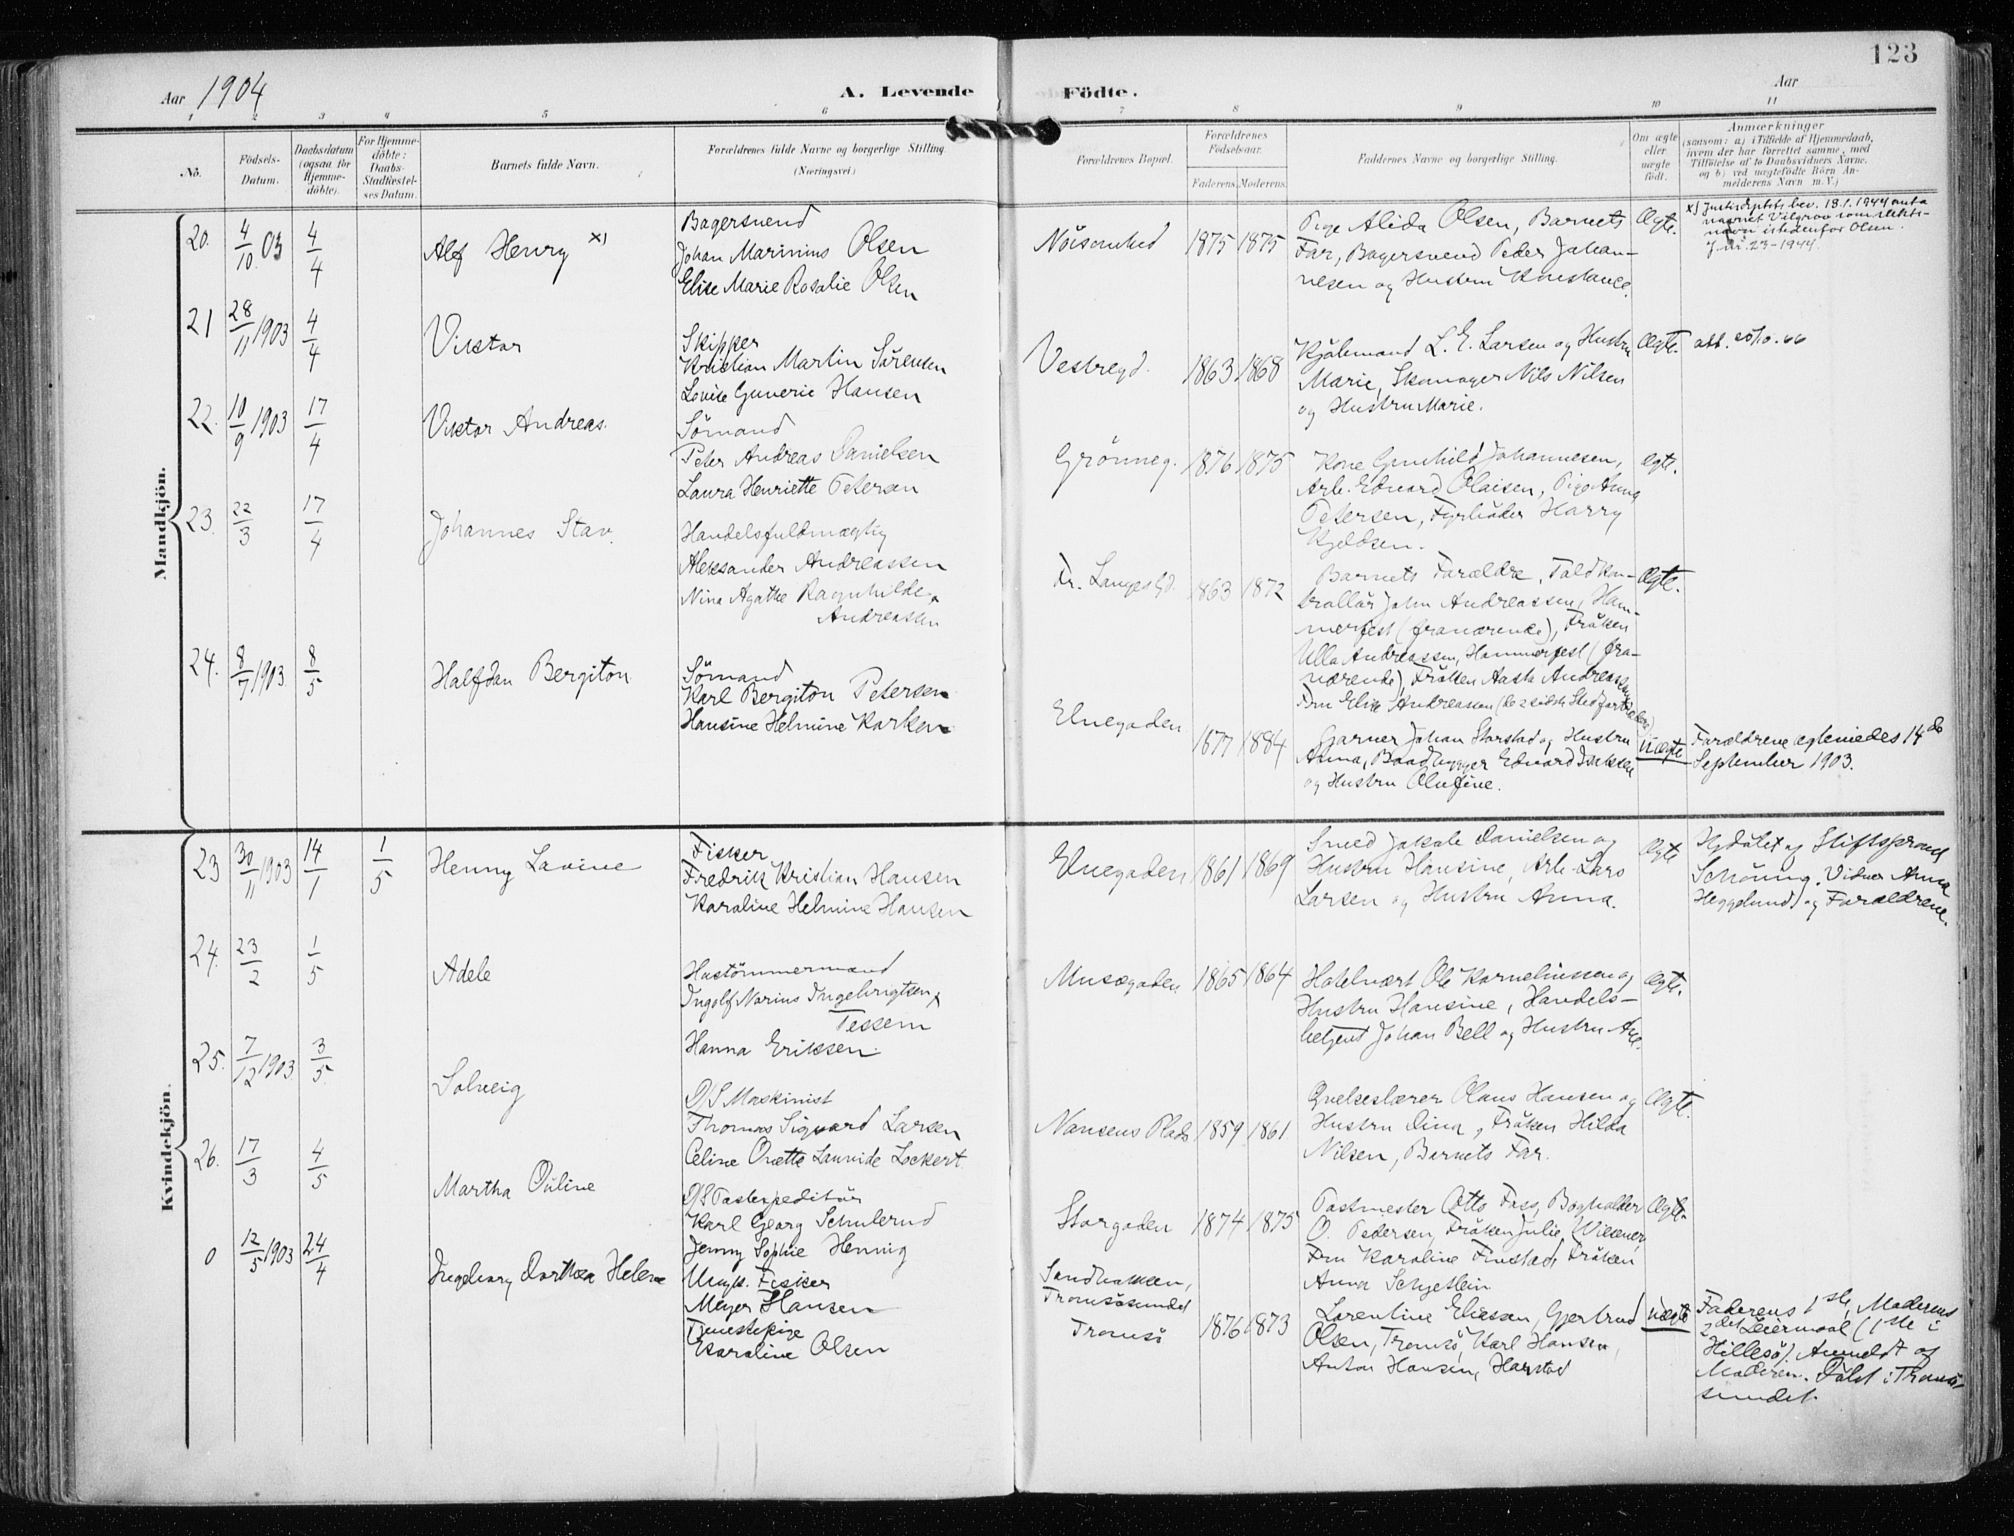 123
Aar 1904
A. Levende Födte.
Aar
1 2 3 4 5 6 7 8 9 10 11
No.
Födsels-Datum.
Daabsdatum (ogsaa for Hjemme-döbte).
For Hjemme-döbte: Daabs-Stadfæstel-ses Datum.
Barnets fulde Navn.
Forældrenes fulde Navne og borgerlige Stilling.
(Næringsvei)
Forældrenes Bopæl.
Forældrenes Födselsaar.
Faderens. Moderens.
Faddernes Navne og borgerlige Stilling.
Om ægte eller uægte födt.
Anmærkninger
(saasom: a) i Tilfælde af Hjemmedaab,
hvem der har forrettet samme, med
Tilföielse af to Daabsvidners Navne.
og b) ved uægtefödte Börn An-
melderens Navn m. V.)
Mandkjön.
20. 4/10 03 4/4 Alf Henry x)
Bagersvend
Johan Marinius Olsen
Elise Marie Rosalie Olsen
Nöisomhed 1875 1875
Pige Alida Olsen, Barnets
Far, Bagersvend Peder Johan-
nesen og Hustru Konstance.
Ægte.
x) Justisdeptets bev. 18.1.1944 anta
navnet Vilgrav som slekts-
navn istedenfor Olsen.
J.nr. 23-1944.
21 28/11 1903 4/4 Viktor
Skipper
Kristian Martin Sörensen
Lovise Guneric Hansen
Vestregd. 1863 1868
L. E. Larsen og Hustru
Marie, Skomager Nils Nilsen
og Hustru Marie.
Ægte. att. 20/10.66
22. 10/9 1903 17/4 Viktor Andreas.
Sömand
Peter Andreas Danielsen
Laura Henriette Petersen
Grönneg. 1876 1875
Kone Gunhild Johannesen,
Arb. Edvard Olaisen, Pige Anna
Petersen, Fyrböder Harry
Kjeldsen.
Ægte.
23. 22/3 17/4 Johannes Stav.
Handelsfuldmægtig
Aleksander Andreassen
Nina Agathe Ragnhilde
Andreassen
Fr. Langes Gd. 1863 1872
Barnets Forældre, Toldkon-
trollör John Andreassen, Ham-
merfest (fraværende), Fröken
Ulla Andreassen, Hammerfest (fra-
værende), Fröken Aasta Andreassen
Fru Elise Andreassen
Ægte.
24. 8/7 1903 8/5 Halfdan Bergiton
Sömand
Karl Bergiton Petersen
Hansine Helmine Karlsen
Elvegaden 1877 1884
Garver Johan Storstad og Hustru
Anna, Baadbygger Edvard Isaksen
og Hustru Olufine.
uægte
Forældrene ægteviedes 14de
September 1903.
Kvindekjön.
23 30/11 1903 14/1 1/5 Henny Lovine
Fisker
Fredrik Kristian Hansen
Karoline Helmine Hansen
Elvegaden 1861 1869
Smed Jakob Danielsen og
Hustru Hansine, Arb. Lars
Larsen og Hustru Anna.
Ægte
Hjdöbt af Stiftsprovst
Schöning. Vidner Anna
Heggelund og Forældrene.
24. 23/2 1/5 Adele
Hustömmermand
Ingolf Narius Ingebrigtsen
Tessem
Hanna Eriksen.
Musægaden 1865 1864
Hotelvært Ole Korneliussen og
Hustru Hansine, Handels-
betjent Johan Bell og Hustru
Ægte.
25. 7/12 1903 3/5 Solveig
D/S Maskinist
Thomas Sigvard Larsen
Celine Orette Lauvide Lockert
Nansens Plads 1859 1861
Övelseslærer Olaus Hansen og
Hustru Dina, Fröken Hilda
Nilsen, Barnets Far.
Ægte.
26. 17/3 4/5 Martha Ouline
D/S Postexpeditör
Karl Georg Schulerud
Jenny Sophie Hennig
Storgaden 1874 1875
Postmester Otto Foss, Bogholder
O. Pedersen, Fröken Julie
Fru Karoline Finstad, Fröken
Anna Schjetlein
Ægte.
0 12/5 1903 24/4 Ingeborg Dorthea Helene
Ungk. Fisker
Meyer Hansen
Tjenestepige
Karoline Olsen
Tromsösundet
Tromsö 1876 1873
Lorentine Eliessen, Gjertrud
Olsen, Tromsö, Karl Hansen,
Anton Hansen, Harstad
uægte
Faderens 1ste, Moderens
2det Leiermaal (1ste i
Hillesö). Anmeldt af
Moderen. Döbt i Tromsö-
sundet.